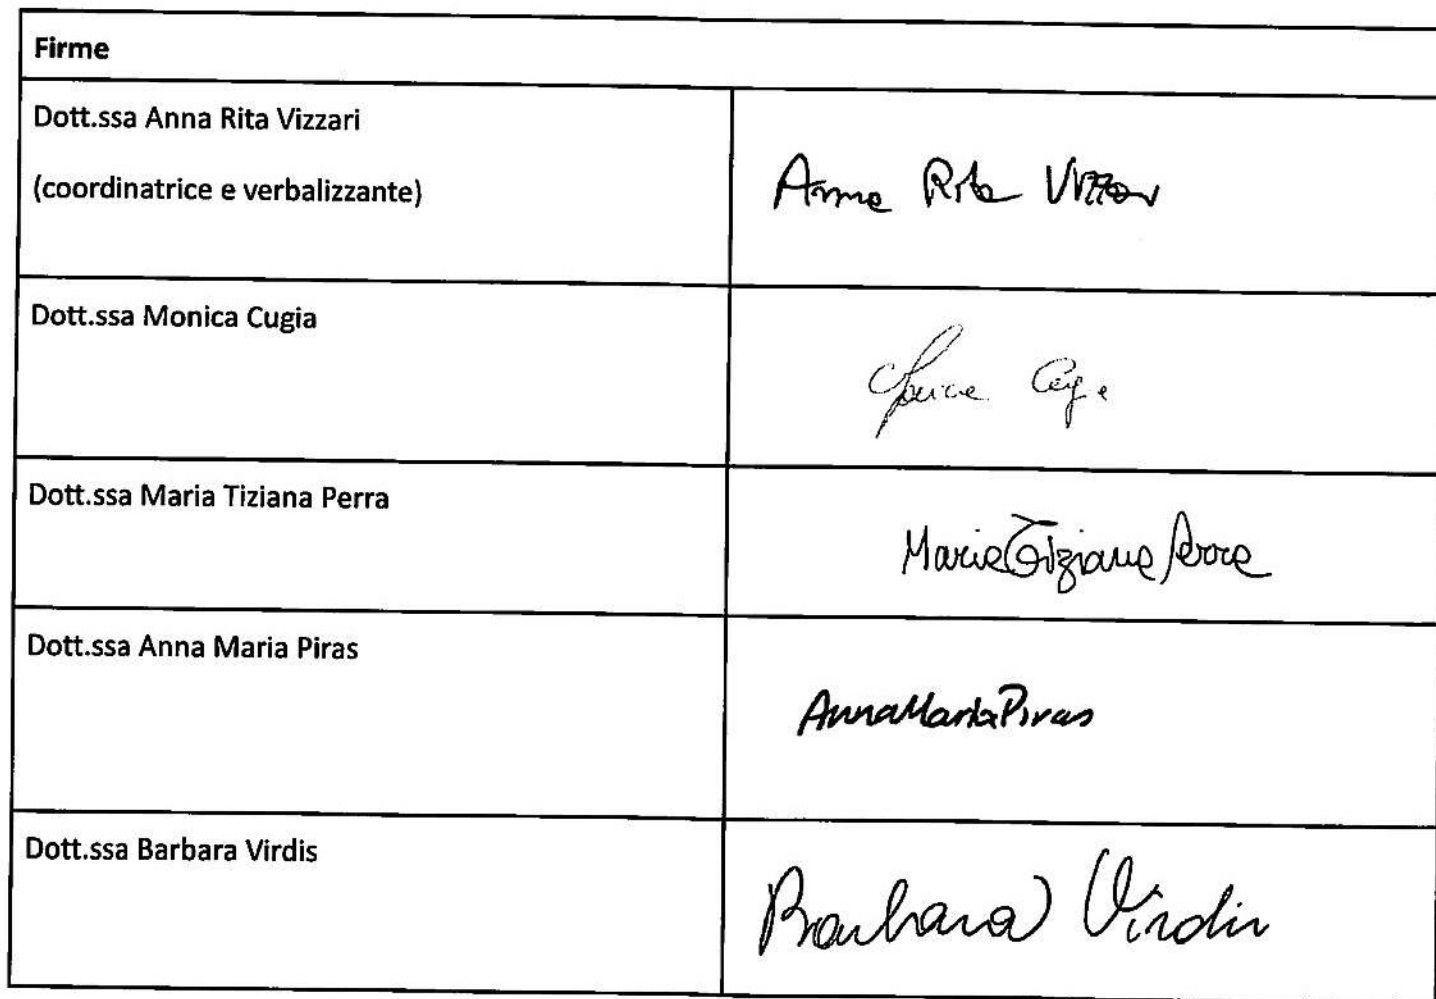 Firme
Dott.ssa Anna Rita Vizzari
(coordinatrice e verbalizzante)
Anna Rita Vizzari
Dott.ssa Monica Cugia
Monica Cugia
Dott.ssa Maria Tiziana Perra
Maria Tiziana Perra
Dott.ssa Anna Maria Piras
Anna Maria Piras
Dott.ssa Barbara Virdis
Barbara Virdis